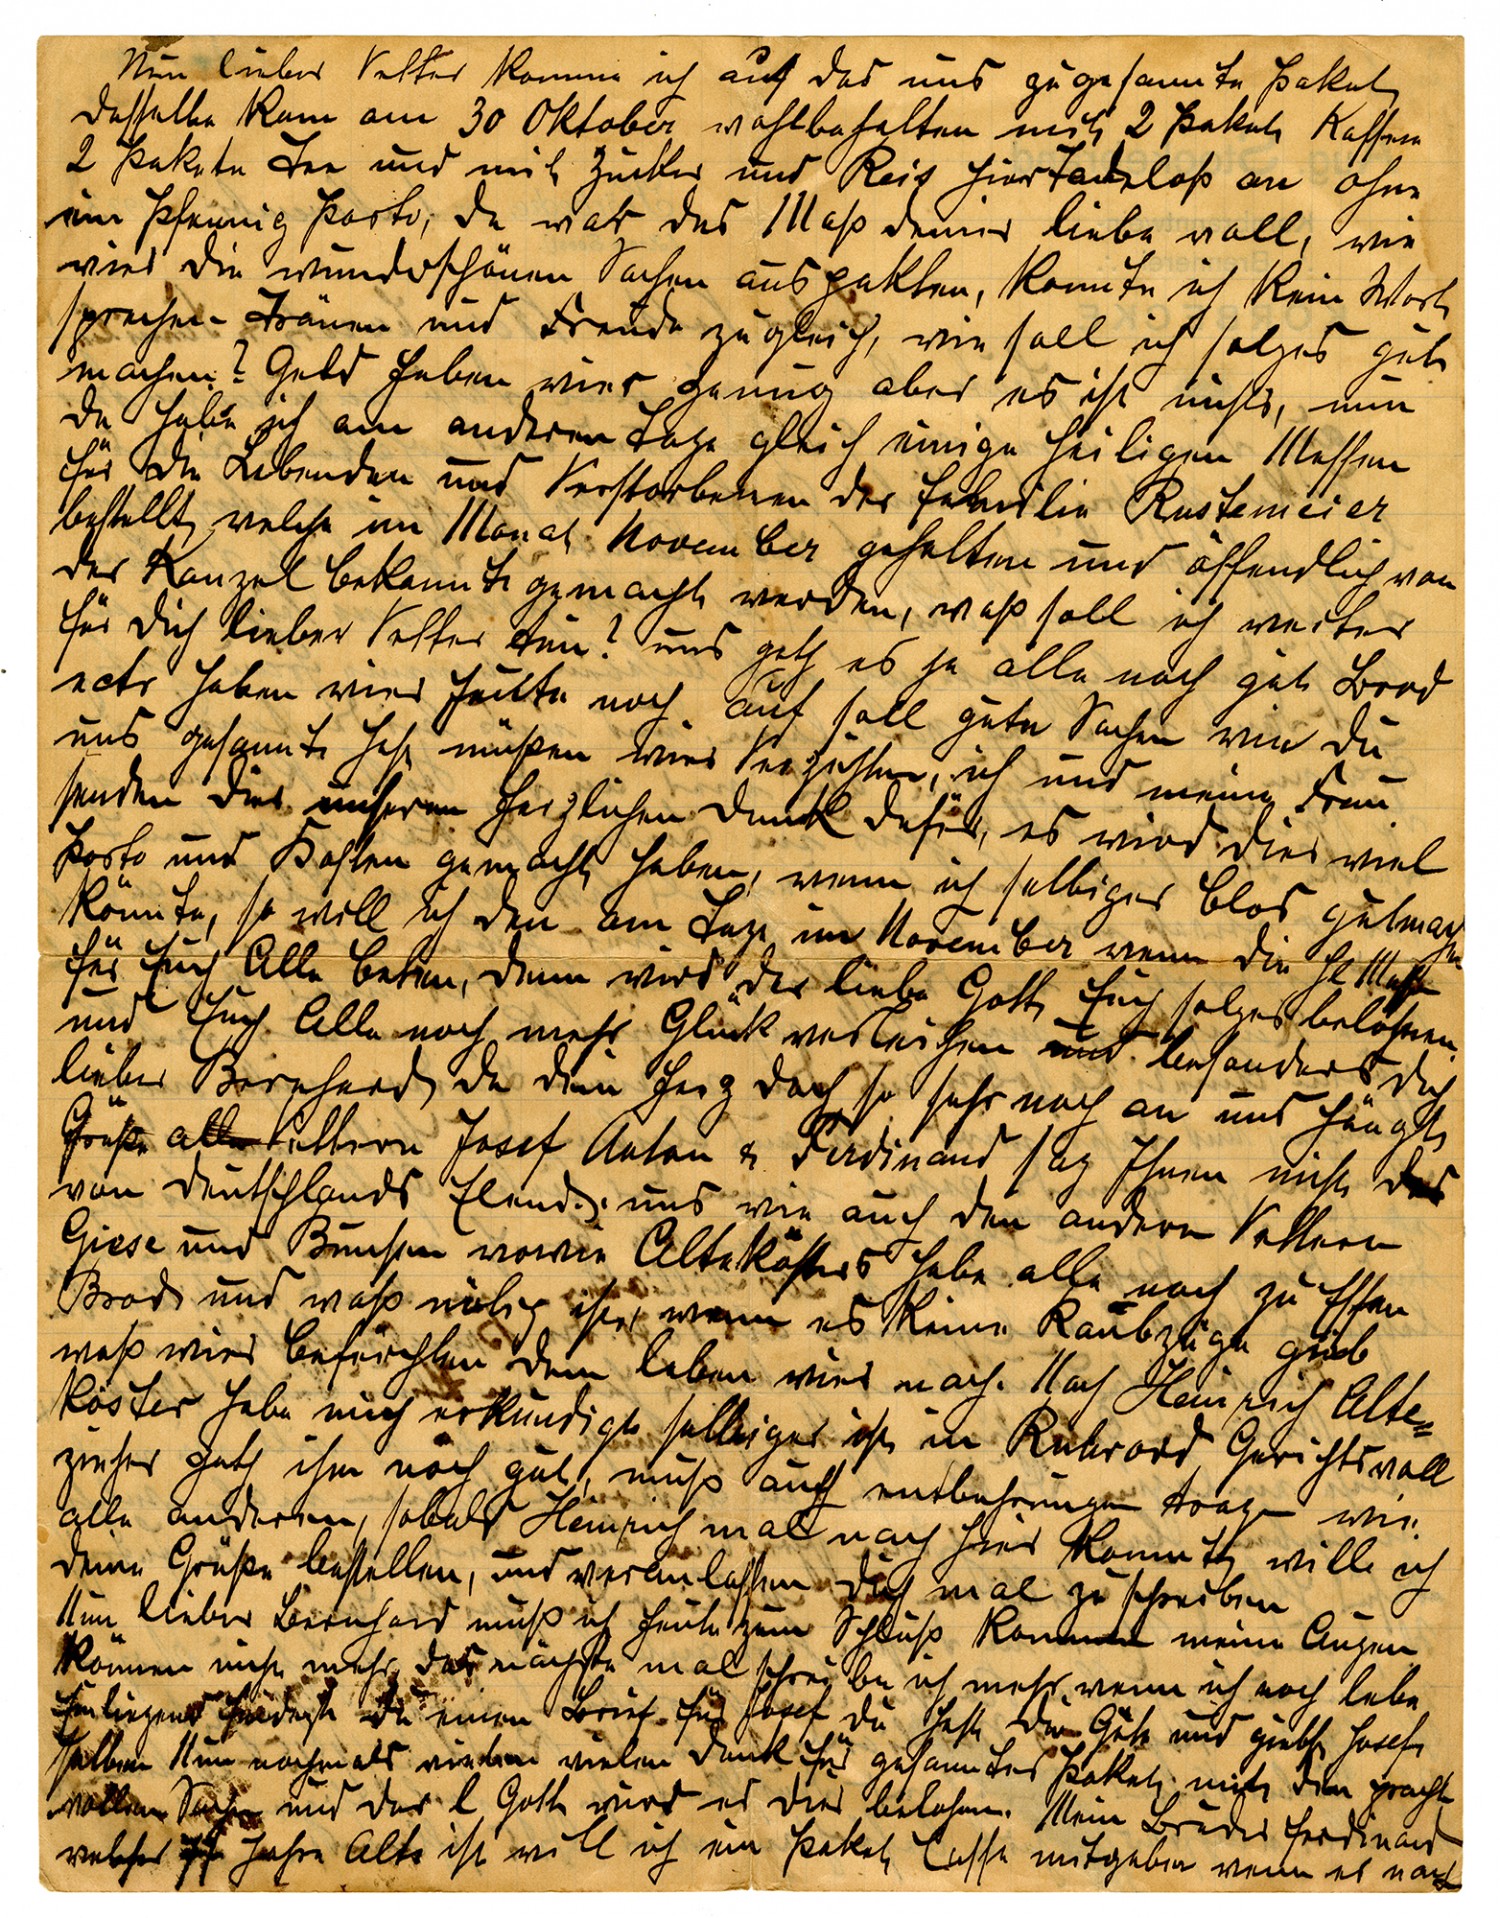 Nun lieber Vetter komme ich auf das uns zugesannte Paket,
dasselbe kam am 30 Oktober wohlbehalten mit 2 Pakete Kaffee
2 Pakete Tee und mit Zucker und Reis hier Tadeloß an ohne
ein Pfennig Porto, da war das Maß deiner liebe voll, wie
wier die wunderschönen Sachen auspakten, konnte ich kein Wort
sprechen Tränen und Freude zugleich, wie soll ich solges gut
machen? Geld haben wier genug aber es ist nichts, nun
da habe ich am anderen Tage gleich einige heiligen Messen
für die Lebenden und Verstorbenen der Familie Rustemeier
bestellt, welche im Monat November gehalten und öffendlich von
der Kanzel bekannt gemacht werden, waß soll ich weiter
für Dich lieber Vetter tun? uns geht es ja alle noch gut Brod
ectr haben wier heute noch auf soll gute Sachen wie du
uns gesannt hast müßen wier Verzichten, ich und meine Frau
senden Dier unseren herzlichen Dank dafür, es wird dier viel
Porto und Kosten gemacht haben, wenn ich selbiges blos gutmachen
könnte, so will ich den am Tage im November wenn die hl Messe
für Euch Alle beten, denn wird der liebe Gott Euch solges belohnen
und Euch Alle noch mehr Glück verleihen und besonders dich
lieber Bernhard, da dein Herz doch so sehr noch an uns hängt,
Grüße alle Vettern Josef Anton & Ferdinand sag Ihnen nicht das
von Deutschlands Elend. uns wie auch den andern Vettern
Giese und Bunsen sowie Alteköster's habe alle noch zu Essen
Brod und waß nötig ist, wenn es keine Raubzüge gieb
waß wier befürchten dem leben wier nach. Nach Heinrich Alte=
köster habe mich erkundigt selbiger ist in Ruhrord Gerichtsvoll
zieher geht ihm noch gut, muß auch entbehrungen tragen wie
alle anderen, sobald Heinrich mal nach hier kommt, will ich
deine Grüße bestellen, und veranlassen dich mal zu schreiben
Nun lieber Bernhard muß ich heute zum Schluß kommen meine Augen
können nicht mehr, das nächste mal schreibe ich mehr, wenn ich noch lebe
Einliegend findest du einen Brief für Josef du hast die Güte und giebst Josef
selben Nun nochmals vielen Dank für gesanntes Paket, mit den pracht
vollen Sachen und der l Gott wird es dier belohnen. Mein Bruder Ferdinand
welcher Jahre Alt ist will ich ein Paket Caffe mitgeben wenn er nach